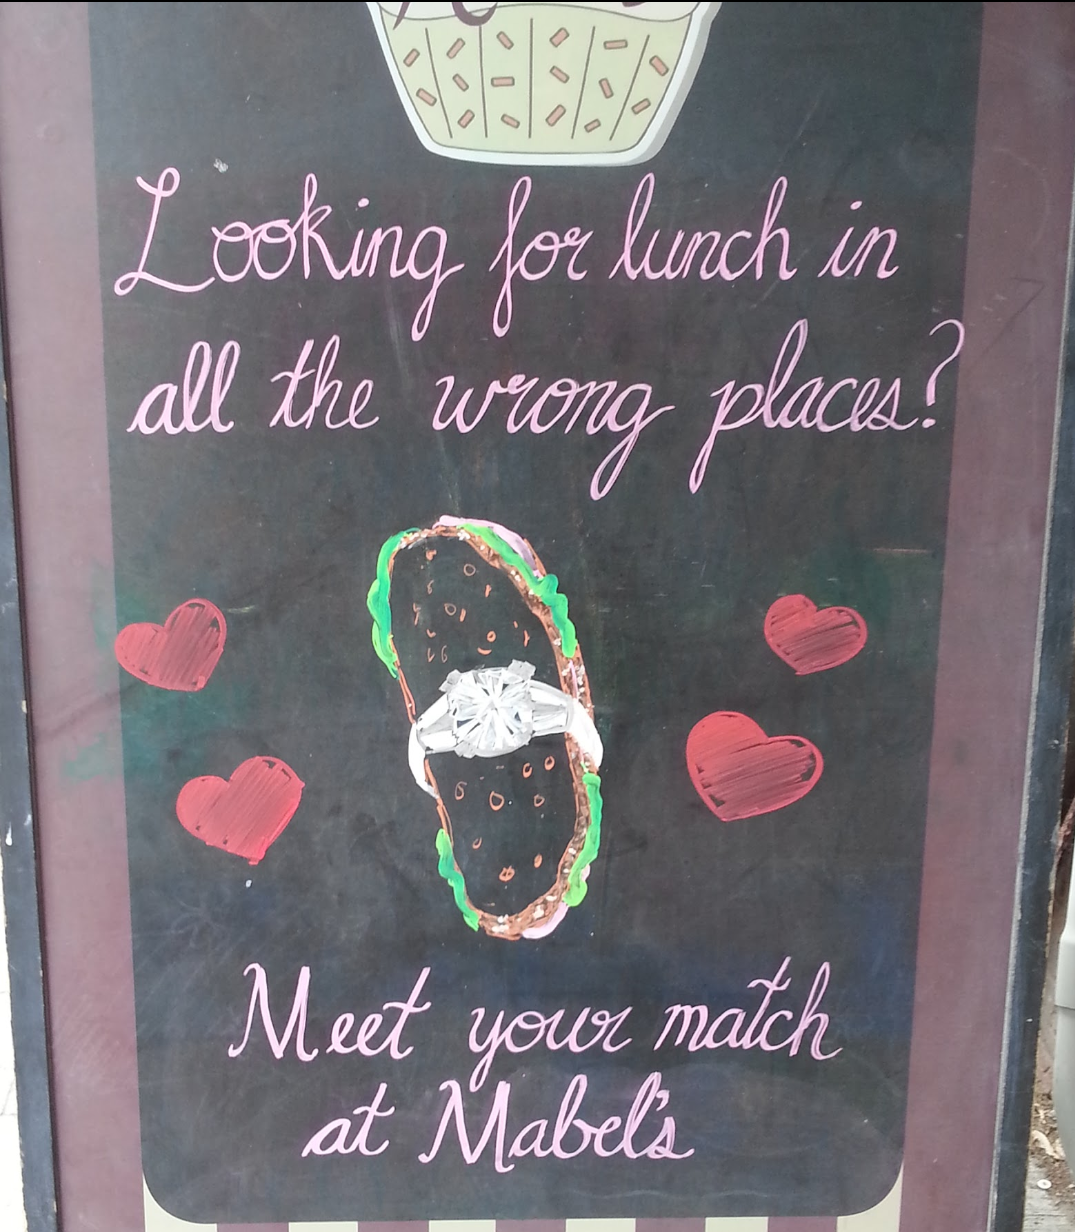 Looking for lunch in
all the wrong places?
Meet your match
at Mabel's